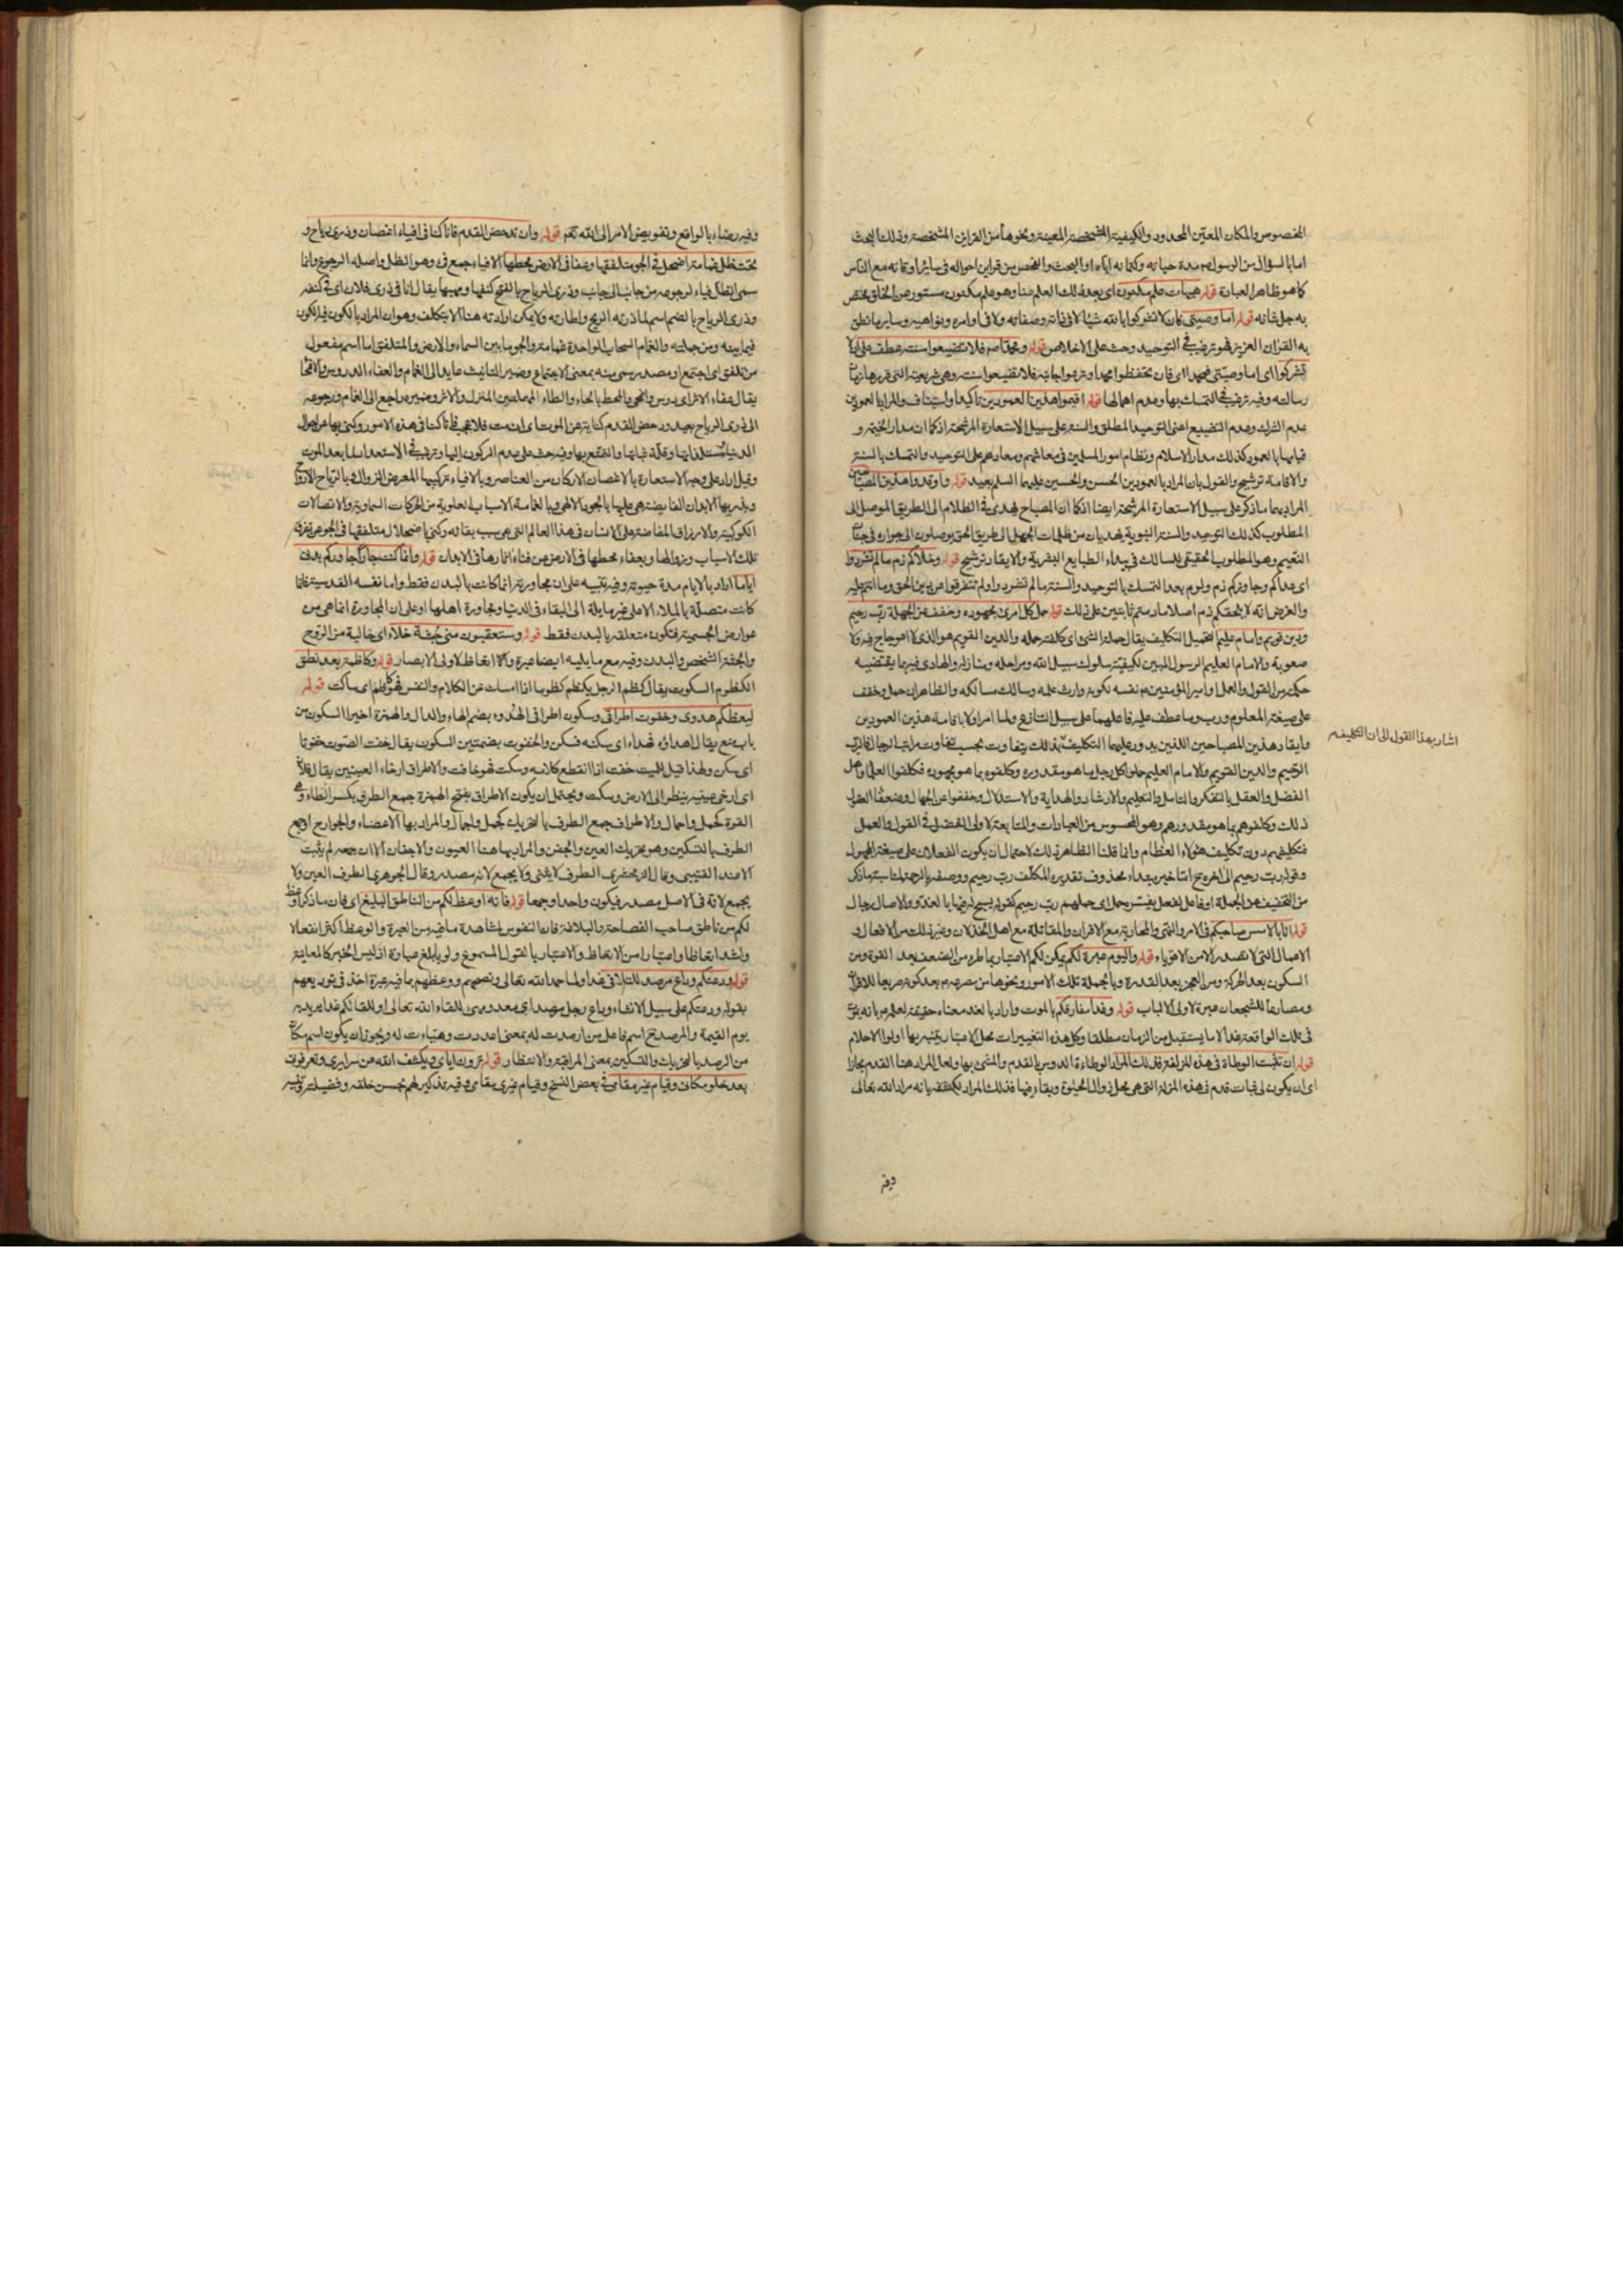 المخصوص والمكان المعين المحدود والكيفية المشخصة المعينة ونحوها من القراين المشخصة وذلك البحث
اما بالسؤال من الرسول مدة حياته وكتمانه اياه او البحث والفحص من قراين احواله في ساير اوقاته مع الناس
كما هو ظاهر العبارة قوله هيهات علم مكنون اى بعد ذلك العلم منا وهو علم مكنون مستور عن الخلق مختص
به جل شانه قوله اما وصيتى فان لا تشركوا بالله شيئا لا في ذاته وصفاته ولا في اوامره ونواهيه وساير ما نطق
به القران العزيز فهو ترغيب في التوحيد وحث على الاخلاص قوله ومحمدا صم فلا تضيعوا سنته عطف على ان لا
تشركوا اى اما وصيتى فمحمدا اى فان تحفظوا محمدا وترعوا جانبه فلا تضيعوا سنته وهى شريعته التى قررها زمان
رسالته وفيه ترغيب في التمسك بها وعدم اهمالها قوله اقيموا هذين العمودين تاكيد واستيناف والمراد بالعمودين
عدم الشرك وعدم التضييع اعنى التوحيد المطلق والسنة على سبيل الاستعارة المرشحة اذ كما ان مدار الخيمة و
قيامها بالعمود كذلك مدار الاسلام ونظام امور المسلمين في معاشهم ومعادهم على التوحيد والتمسك بالسنة
والاقامة ترشيح والقول بان المراد بالعمودين الحسن والحسين عليهما السلم بعيد قوله واوقدوا هذين المصباحين
المراد بهما ما ذكر على سبيل الاستعارة المرشحة ايضا اذ كما ان المصباح يهدى في الظلام الى الطريق الموصل الى
المطلوب كذلك التوحيد والسنة النبوية يهديان من ظلمات الجهل الى طريق الحق يوصلون الى جواره في جنات
النعيم وهو المطلوب الحقيقى للسالك في بيداء الطبايع البشرية والايقاد ترشيح قوله وخلاكم ذم ما لم تشردوا
اى عداكم وجاوزكم ذم ولوم بعد التمسك بالتوحيد والسنة ما لم تشردوا ولم تتفرقوا عن دين الحق وما انتم عليه
والغرض انه لا يلحقكم ذم اصلا ما دمتم ثابتين على ذلك قوله حمل كل امرئ مجهوده وخفف عن الجهلة رب رحيم
ودين قويم وامام عليم التحميل التكليف يقال حمله الشئ اى كلفه حمله والدين القويم هو الذى لا اعوجاج فيه ولا
صعوبة والامام العليم الرسول المبين لكيفية سلوك سبيل الله ومراحله ومنازله والهادى فيها بما يقتضيه
حكمته من القول والعمل وامير المؤمنين نفسه لكونه وارث علمه وسالك مسالكه والظاهر ان حمل وخفف
على صيغة المعلوم ورب وما عطف عليه فاعلهما على سبيل التنازع ولما امر اولا باقامة هذين العمودين
وايقاد هذين المصباحين اللذين يدور عليهما التكليف ذلك يتفاوت بحسب تفاوت مراتب الرجال فالرب
الرحيم والدين القويم والامام العليم حملوا كل رجل ما هو مقدوره وكلفوه بما هو مجهوده فكلفوا العلماء واهل
الفضل والعقل بالتفكر والتامل والتعليم والارشاد والهداية والاستدلال وخففوا عن الجهال وضعفاء العقول
ذلك وكلفوهم بما هو مقدورهم وهو المحسوس من العبادات والمتابعة لاولى الفضل في القول والعمل
فتكليفهم دون تكليف هؤلاء العظام وانما قلنا الظاهر ذلك لاحتمال ان يكون الفعلان على صيغة المجهول
وقوله رب رحيم الى اخره ح اما خبر مبتداء محذوف تقديره المكلف رب رحيم ووصفه بالرحمة لمناسبة ما ذكر
من التخفيف عن الجهلة او فاعل لفعل يفسره حمل اى حملهم رب رحيم كقوله يسبح له فيها بالغدو والاصال رجال
قوله انا بالامس صاحبكم في الامر والنهى والمحاربة مع الاقران والمقاتلة مع اهل الخذلان وغير ذلك من الافعال و
الاعمال التى لا تصدر الا من الاقوياء قوله واليوم عبرة لكم يمكن لكم الاعتبار بما طرء من الضعف بعد القوة ومن
السكون بعد الحركة ومن العجز بعد القدرة وبالجملة تلك الامور ونحوها من مصرعه بعد كونه صريعا للاقران
ومصارعا للشجعان عبرة لاولى الالباب قوله وغدا مفارقكم بالموت واراد بالغد معناه حقيقة لعلمه بانه يموت
في تلك الواقعة غدا او ما يستقبل من الزمان مطلقا وكل هذه التغييرات محل الاعتبار يعتبر بها اولوا الاحلام
قوله ان تثبت الوطاة في هذه المزلة فذلك المراد الوطاءة الدوس بالقدم والمشى بها ولعل المراد هنا القدم مجازا
اى ان يكون لى ثبات قدم في هذه المزلة التى هى محل زوال الحيوة وبقاء فيها فذلك المراد بمقتضى انه مراد الله تعالى
وفيه
اشار بهذا القول الى ان التكليف
وفيه رضاء بالواقع وتفويض الامر الى الله تعم قوله وان تدحض القدم فانا كنا في افياء اغصان وذرى رياح و
تحت ظل غمامة اضمحل في الجو متلفقها وعفا في الارض محطها الافياء جمع فئ وهو الظل واصله الرجوع وانما
سمى الظل فياء لرجوعه من جانب الى جانب وذرى الرياح بالفتح كنفها ومهبها يقال انا في ذرى فلان اى في كنفه
وذرى الرياح بالضم اسم لما ذرته الريح واطارته ولا يمكن ارادته هنا الا بتكلف وهو ان المراد بالكون فيه الكون
فيما بينه ومن جملته والغمام السحاب الواحدة غمامة والجو ما بين السماء والارض والمتلفق اما اسم مفعول
من تلفق اى اجتمع او مصدر ميمى منه بمعنى الاجتماع وضمير التانيث عايد الى الغمام والعفاء الدروس والامحا
يقال عفاء الاثر اى درس وانمحى والمحط بالحاء والطاء المهملتين المنزل والاثر وضميره راجع الى الغمام ورجوعه
الى ذرى الرياح بعيد ودحض القدم كناية عن الموت اى ان مت فلا عجب فانا كنا في هذه الامور وكنى بها عن احوال
الدنيا ومستلذاتها وقلة ثباتها والتمتع بها وفيه حث على عدم الركون اليها وترغيب في الاستعداد لما بعد الموت
وقيل اراد على وجه الاستعارة بالاغصان الاركان من العناصر وبالافياء تركيبها المعرض للزوال وبالرياح الارواح
وبذريها الابدان الفايضة هى عليها بالجود الالهى وبالغمامة الاسباب العلوية من الحركات السماوية والاتصالات
الكوكبية والارزاق المفاضة على الانسان في هذا العالم التى هى سبب بقائه وكنى باضمحلال متلفقها في الجو عن تفرق
تلك الاسباب وزوالها وبعفاء محطها في الارض عن فناء اثارها في الابدان قوله وانما كنت جارا جاوركم بدنى
اياما اراد بالايام مدة حيوته وفيه تنبيه على ان مجاورته انما كانت بالبدن فقط واما نفسه القدسية فانما
كانت متصلة بالملاء الاعلى غير مايلة الى البقاء في الدنيا ومجاورة اهلها او على ان المجاورة انما هى من
عوارض الجسمية فتكون متعلقة بالبدن فقط قوله وستعقبون منى جثة خلاء اى خالية من الروح
والجثة الشخص والبدن وفيه مع ما يليه ايضا عبرة واتعاظ لاولى الابصار قوله وكاظمة بعد نطق
الكظوم السكوت يقال كظم الرجل يكظم كظوما اذا امسك عن الكلام والنفس فهو كاظم اى ساكت قوله
ليعظكم هدوى وخفوت اطراقى وسكون اطرافى الهدوء بضم الهاء والدال والهمزة اخيرا السكون من
باب منع يقال اهداؤه فهداء اى سكنه فسكن والخفوت بضمتين السكون يقال خفت الصوت خفوتا
اى سكن ولهذا قيل للميت خفت اذا انقطع كلامه وسكت فهو خافت والاطراق ارخاء العينين يقال فلان
اى ارخى عينيه ينظر الى الارض وسكت ويحتمل ان يكون الاطراق بفتح الهمزة جمع الطرق بكسر الطاء وهى
القوة كحمل واحمال والاطراف جمع الطرف بالتحريك كجمل واجمال والمراد بها الاعضاء والجوارح او جمع
الطرف بالتسكين وهو تحريك العين والجفن والمراد بها هنا العيون والاجفان الا ان جمعه لم يثبت
الا عند القتيبى وقال الزمخشرى الطرف لا يثنى ولا يجمع لانه مصدر وقال الجوهرى الطرف العين ولا
يجمع لانه في الاصل مصدر فيكون واحدا وجمعا قوله فانه اوعظ لكم من الناطق البليغ اى فان ما ذكر اوعظ
لكم من ناطق صاحب الفصاحة والبلاغة فان النفوس لمشاهدة ما فيه من العبرة والوعظ اكثر انفعالا
واشد اتعاظا واعتبارا من الاتعاظ والاعتبار بالقول المسموع ولو بابلغ عبارة اذ ليس الخبر كالمعاينة
قوله ودعتكم وداع مرصد للتلاقى غدا ولما حمد الله تعالى ونصحهم ووعظهم بما فيه عبرة اخذ في توديعهم
بقوله ودعتكم على سبيل الانشاء وداع رجل مرصد اى معد ومهئ للقاء الله تعالى او للقائكم غدا يريد به
يوم القيمة والمرصد ح اسم فاعل من ارصدت له بمعنى اعددت وهيئت له ويجوز ان يكون اسم مكان
من الرصد بالتحريك والتسكين بمعنى المراقبة والانتظار قوله ترون ايامى ويكشف الله عن سرايرى وتعرفونى
بعد خلو مكانى وقيام غير مقامى في بعض النسخ وقيام غيرى مقامى وفيه تذكير لهم بحسن خلقه وفضيلته